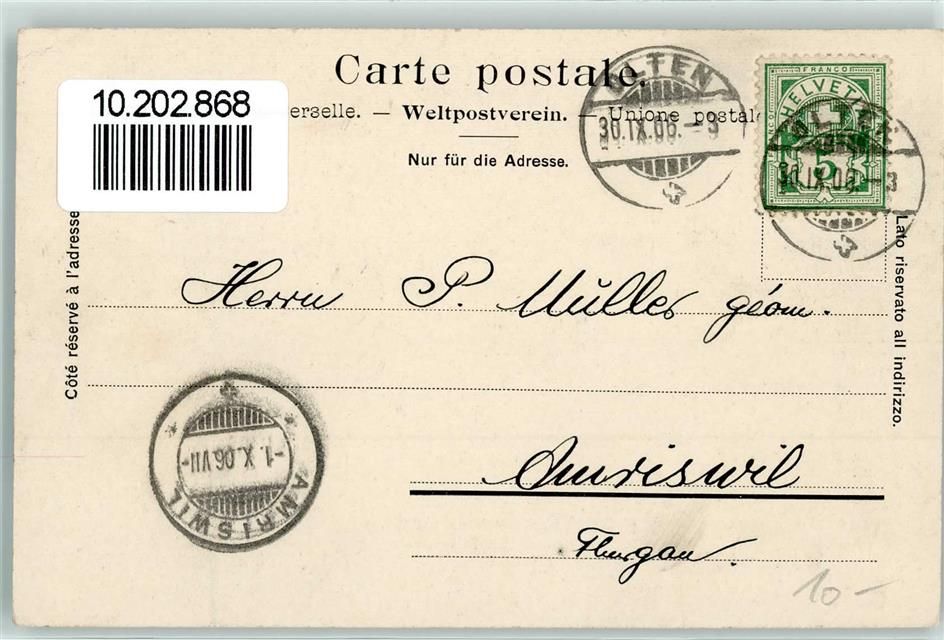 Carte postale.
10.202.868
erselle. — Weltpostverein. — Unione postale
Nur für die Adresse.
OLTEN
30.IX.06.–9
FRANCO
HELVETIA
5
OLTEN
30.IX.06.–3
Côté réservé à l'adresse
Lato riservato all indirizzo.
Herrn P. Müller géom.
AMRISWIL
-1.X.06.VII-
Amriswil
Thurgau.
10-